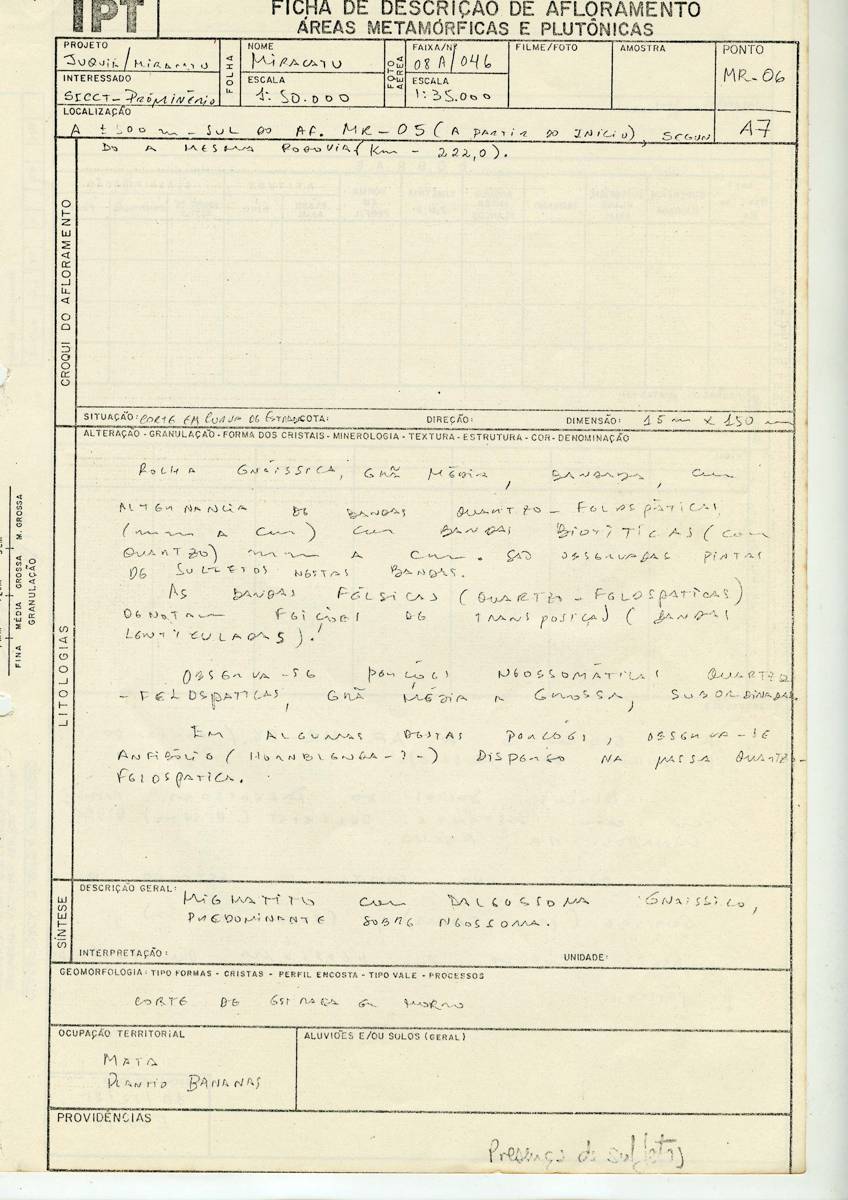 IPT
FICHA DE DESCRIÇÃO DE AFLORAMENTO
ÁREAS METAMÓRFICAS E PLUTÔNICAS
PROJETO
JUQUIÁ/MIRACATU
INTERESSADO
SICCT-PRÓMINÉRIO
FOLHA
NOME
MIRACATU
ESCALA
1:50.000
FOTO AÉREA
FAIXA/Nº
08A/046
ESCALA
1:35.000
FILME/FOTO
AMOSTRA
PONTO
MR-06
A7
LOCALIZAÇÃO
A ±500 m - SUL DO AF. MR-05 (A PARTIR DO INÍCIO), SEGUN
DO A MESMA RODOVIA (Km - 222,0).
CROQUI DO AFLORAMENTO
SITUAÇÃO: CORTE EM CURVA DE ESTRADA COTA: DIREÇÃO: DIMENSÃO: 15 m X 150 m
LITOLOGIAS
ALTERAÇÃO - GRANULAÇÃO - FORMA DOS CRISTAIS - MINEROLOGIA - TEXTURA - ESTRUTURA - COR - DENOMINAÇÃO
ROCHA GNÁISSICA, GRÃ MÉDIA, BANDADA, COM
ALTERNANCIA DE BANDAS QUARTZO-FELDSPÁTICAS
(mm A cm) COM BANDAS BIOTÍTICAS (COM
QUARTZO) mm A cm. SÃO OBSERVADAS PINTAS
DE SULFETOS NESTAS BANDAS.
AS BANDAS FÉLSICAS (QUARTZO-FELDSPATICAS)
DENOTAM FEIÇÕES DE TRANSPOSIÇÃO (BANDAS
LENTICULADAS).
OBSERVA-SE PORÇÕES NEOSSOMÁTICAS QUARTZO
-FELDSPATICAS, GRÃ MÉDIA A GROSSA, SUBORDINADAS.
EM ALGUMAS DESTAS PORÇÕES, OBSERVA-SE
ANFIBÓLIO (HORNBLENDA-?-) DISPERSO NA MASSA QUARTZO-
FELDSPATICA.
FINA MÉDIA GROSSA M. GROSSA
GRANULAÇÃO
SÍNTESE
DESCRIÇÃO GERAL: MIGMATITO COM PALEOSSOMA GNÁISSICO,
PREDOMINANTE SOBRE NEOSSOMA.
INTERPRETAÇÃO: UNIDADE:
GEOMORFOLOGIA: TIPO FORMAS - CRISTAS - PERFIL ENCOSTA - TIPO VALE - PROCESSOS
CORTE DE ESTRADA EM MORRO
OCUPAÇÃO TERRITORIAL
MATA
PLANTIO BANANAS
ALUVIÕES E/OU SOLOS (GERAL)
PROVIDÊNCIAS
Presença de sulfetos